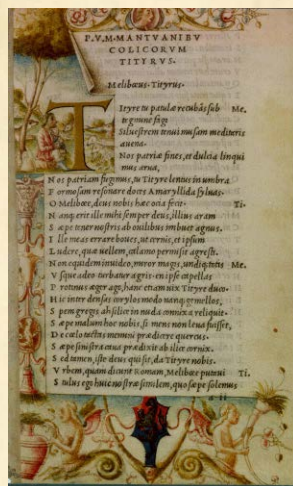 P. V. M. MANTVANI BV
COLICORVM
TITYRVS.
Melibœus. Tityrus.
TItyre tu patulæ recubãs sub Me.
tegmine fagi
Siluestrem tenui musam meditaris
auena.
Nos patriæ fines, et dulcia linquimus arua,
Nos patriam fugimus, tu Tityre lentus in umbra
Formosam resonare doces Amaryllida syluas.
O Melibœe, deus nobis hæc ocia fecit. Ti.
Nanq; erit ille mihi semper deus, illius aram
Sæpe tener nostris ab ouilibus imbuet agnus.
Ille meas errare boues, ut cernis, et ipsum
Ludere, quæ uellem, calamo permisit agresti.
Non equidem inuideo, miror magis, undiq; totis Me.
Vsque adeo turbatur agris. en ipse capellas
Protinus æger ago, hanc etiam uix Tityre duco.
Hic inter densas corylos modo nanq; gemellos,
Spem gregis ah silice in nuda connixa reliquit.
Sæpe malum hoc nobis, si mens non leua fuisset,
De cœlo tactas memini prædicere quercus.
Sæpe sinistra caua prædixit ab ilice cornix.
Sed tamen, iste deus qui sit, da Tityre nobis.
Vrbem, quam dicunt Romam, Melibœe putaui Ti.
Stultus ego huic nostræ similem, quo sæpe solemus
a ii